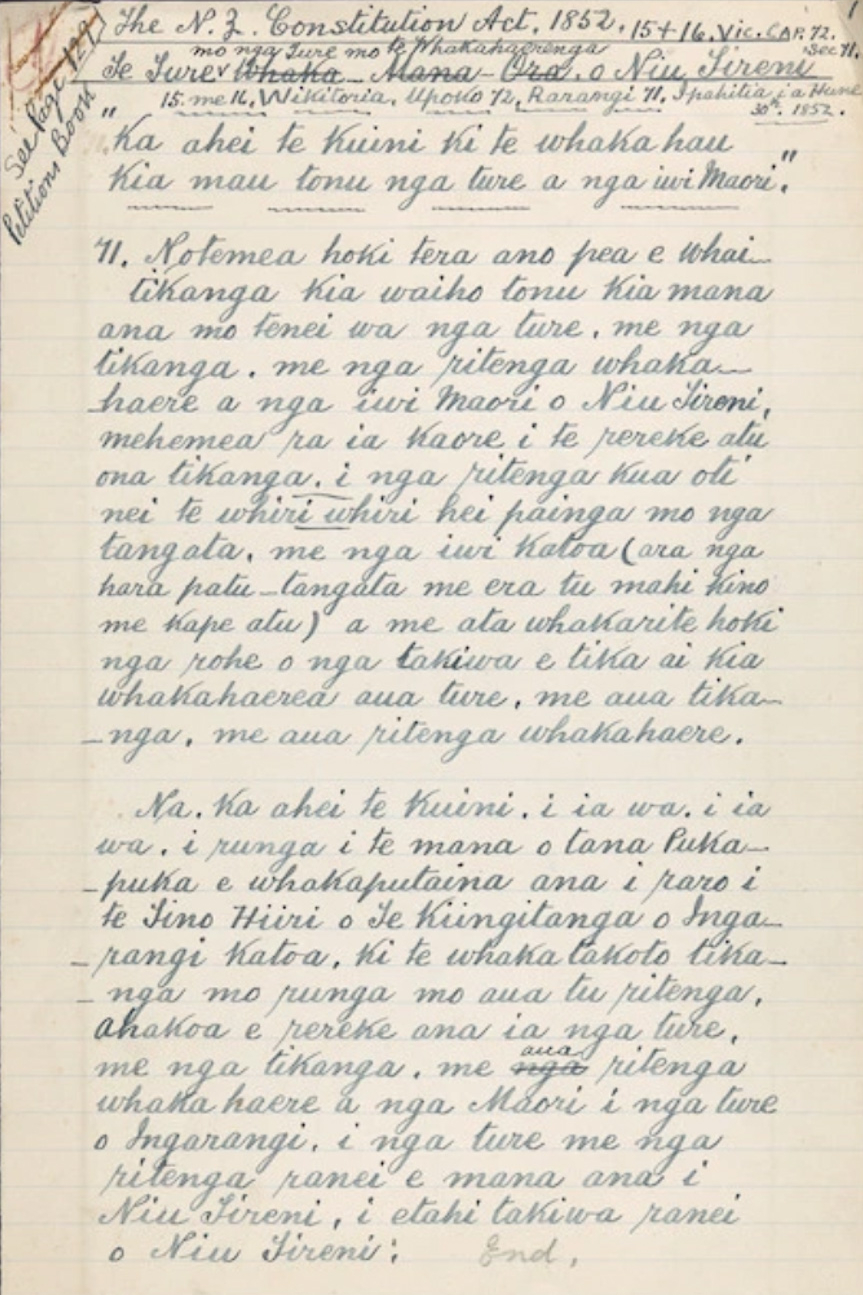 1
The N.Z. Constitution Act. 1852. 15+16. Vic. CAP. 72. Sec 71.
mo nga Ture mo te Whakahaerenga
Te Ture Whaka - Mana - Ora. o Niu Tireni
15. me 16. Wikitoria. Upoko 72. Rarangi 71. I pahitia i a Hune 30th. 1852.
See Page 129
Petitions Book
"Ka ahei te Kuini ki te whakahau
kia mau tonu nga ture a nga iwi Maori."
71. Notemea hoki tera ano pea e whai-
tikanga kia waiho tonu kia mana
ana mo tenei wa nga ture. me nga
tikanga. me nga ritenga whaka-
-haere a nga iwi Maori o Niu Tireni,
mehemea ra ia kaore i te rereke atu
ona tikanga. i nga ritenga kua oti
nei te whiriwhiri hei painga mo nga
tangata. me nga iwi katoa (ara nga
hara patu-tangata me era tu mahi kino
me kape atu) a me ata whakarite hoki
nga rohe o nga takiwa e tika ai kia
whakahaerea aua ture, me aua tika-
-nga, me aua ritenga whakahaere.
Na. Ka ahei te Kuini. i ia wa. i ia
wa. i runga i te mana o tana Puka-
-puka e whakaputaina ana i raro i
te Tino Hiiri o Te Kiingitanga o Inga-
-rangi katoa. ki te whakatakoto tika-
-nga mo runga mo aua tu ritenga,
ahakoa e rereke ana ia nga ture,
me nga tikanga. me nga aua ritenga
whakahaere a nga Maori i nga ture
o Ingarangi. i nga ture me nga
ritenga ranei e mana ana i
Niu Tireni, i etahi takiwa ranei
o Niu Tireni: End.